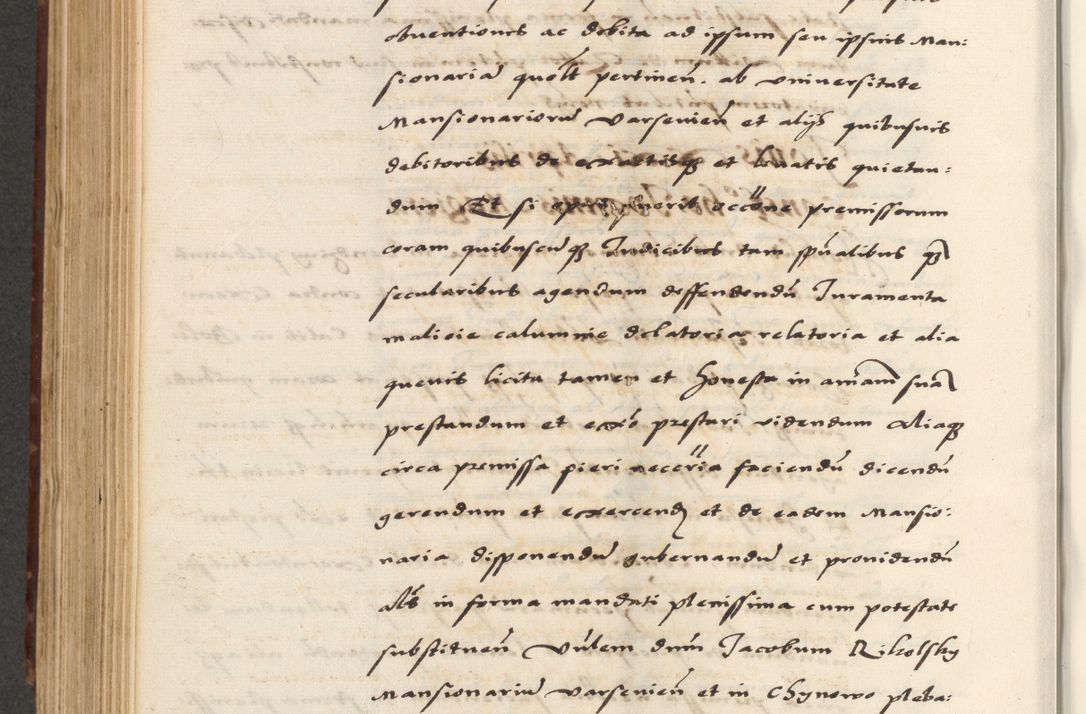 obventiones ac debita ad ipsum seu ipsius Man:
sionariā quolt pertinen̄. ab universitate
Mansionariorū Varsevien̄ et alijs quibusvis
debitoribus de exactisqȝ et levatis quietan:
dum Et si opus fuerit occōne premissorum
coram quibuscūqȝ Iudicibus tam spūalibus qȝ
secularibus agendum deffendendū Iuramenta
malicie calumnie delatoria relatoria et alia
quevis licita tamen et honesta in aīam suā
prestandum et prestari videndum Aliaqȝ
circa premissa fieri neccēria faciendū dicendū
gerendum et exercend et de eadem Mansio:
naria disponendū gubernandū et providendū
als in forma mandati plenissima cum potestate
substituen̄ Vūlem dnm Jacobum Rikolsky
Mansionariū Varsevien̄ et in Chynowo pleba: